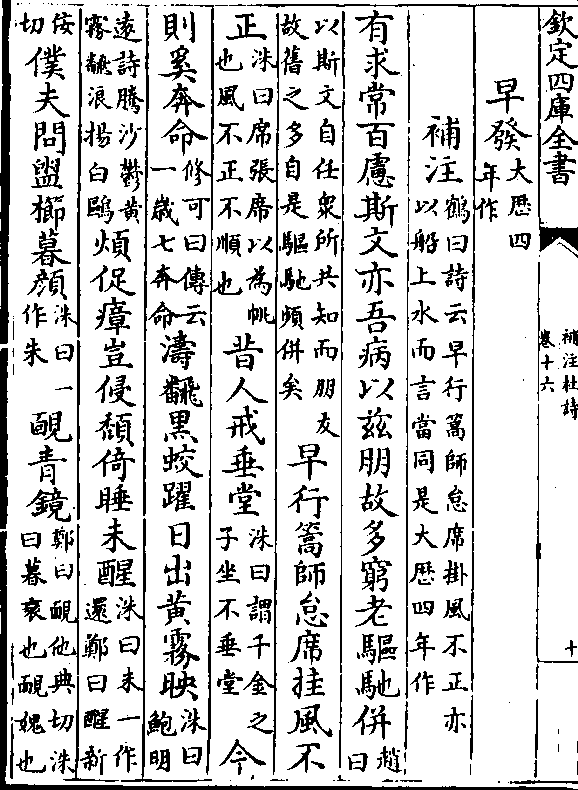 欽定四庫全書
補注杜詩
卷十六
十
早發大歴四
年作
補注鶴曰詩云早行篙師怠席掛風不正亦
以船上水而言當同是大歴四年作
有求常百慮斯文亦吾病以兹朋故多窮老驅馳併趙
曰
以斯文自任衆所共知而朋友
故舊之多自是驅馳頻併矣
早行篙師怠席挂風不
正洙曰席張席以為帆
也風不正不順也
昔人戒垂堂洙曰謂千金之
子坐不垂堂
今
則奚奔命修可曰傳云
一歲七奔命
濤翻黑蛟躍日出黄霧映洙曰
鮑明
逺詩騰沙鬱黄
霧翻浪揚白鷗
煩促瘴豈侵頽倚睡未醒洙曰未一作
還鄭曰醒新
佞
切
僕夫問盥櫛暮顔洙曰一
作朱
靦青鏡鄭曰靦他典切洙
曰暮衰也靦媿也